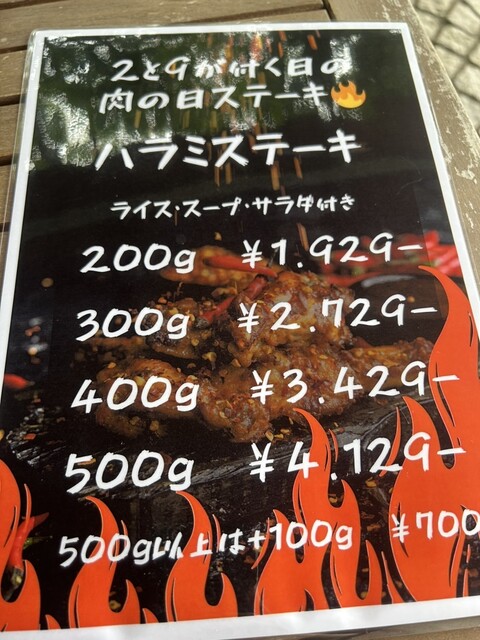 2と9が付く日の
肉の日ステーキ🔥
ハラミステーキ
ライス・スープ・サラダ付き
200g ¥1.929-
300g ¥2.729-
400g ¥3.429-
500g ¥4.129-
500g以上は+100g ¥700